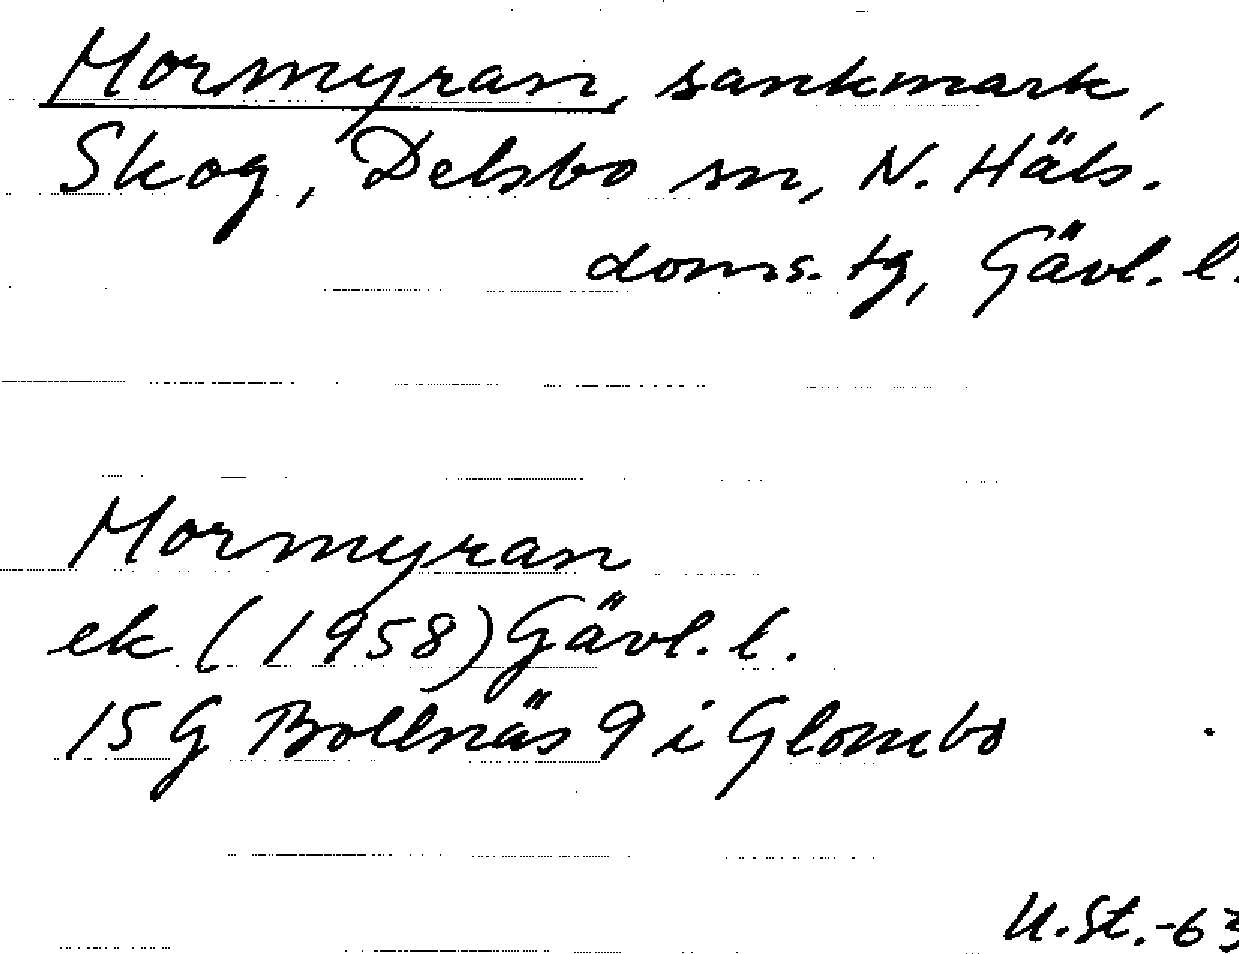 Mormyran, sankmark,
Skog, Delsbo sn, N. Häls.
doms. tg, Gävl. l.
Mormyran
ek (1958) Gävl. l.
15 G Bollnäs 9 i Glombo
U.St.-63